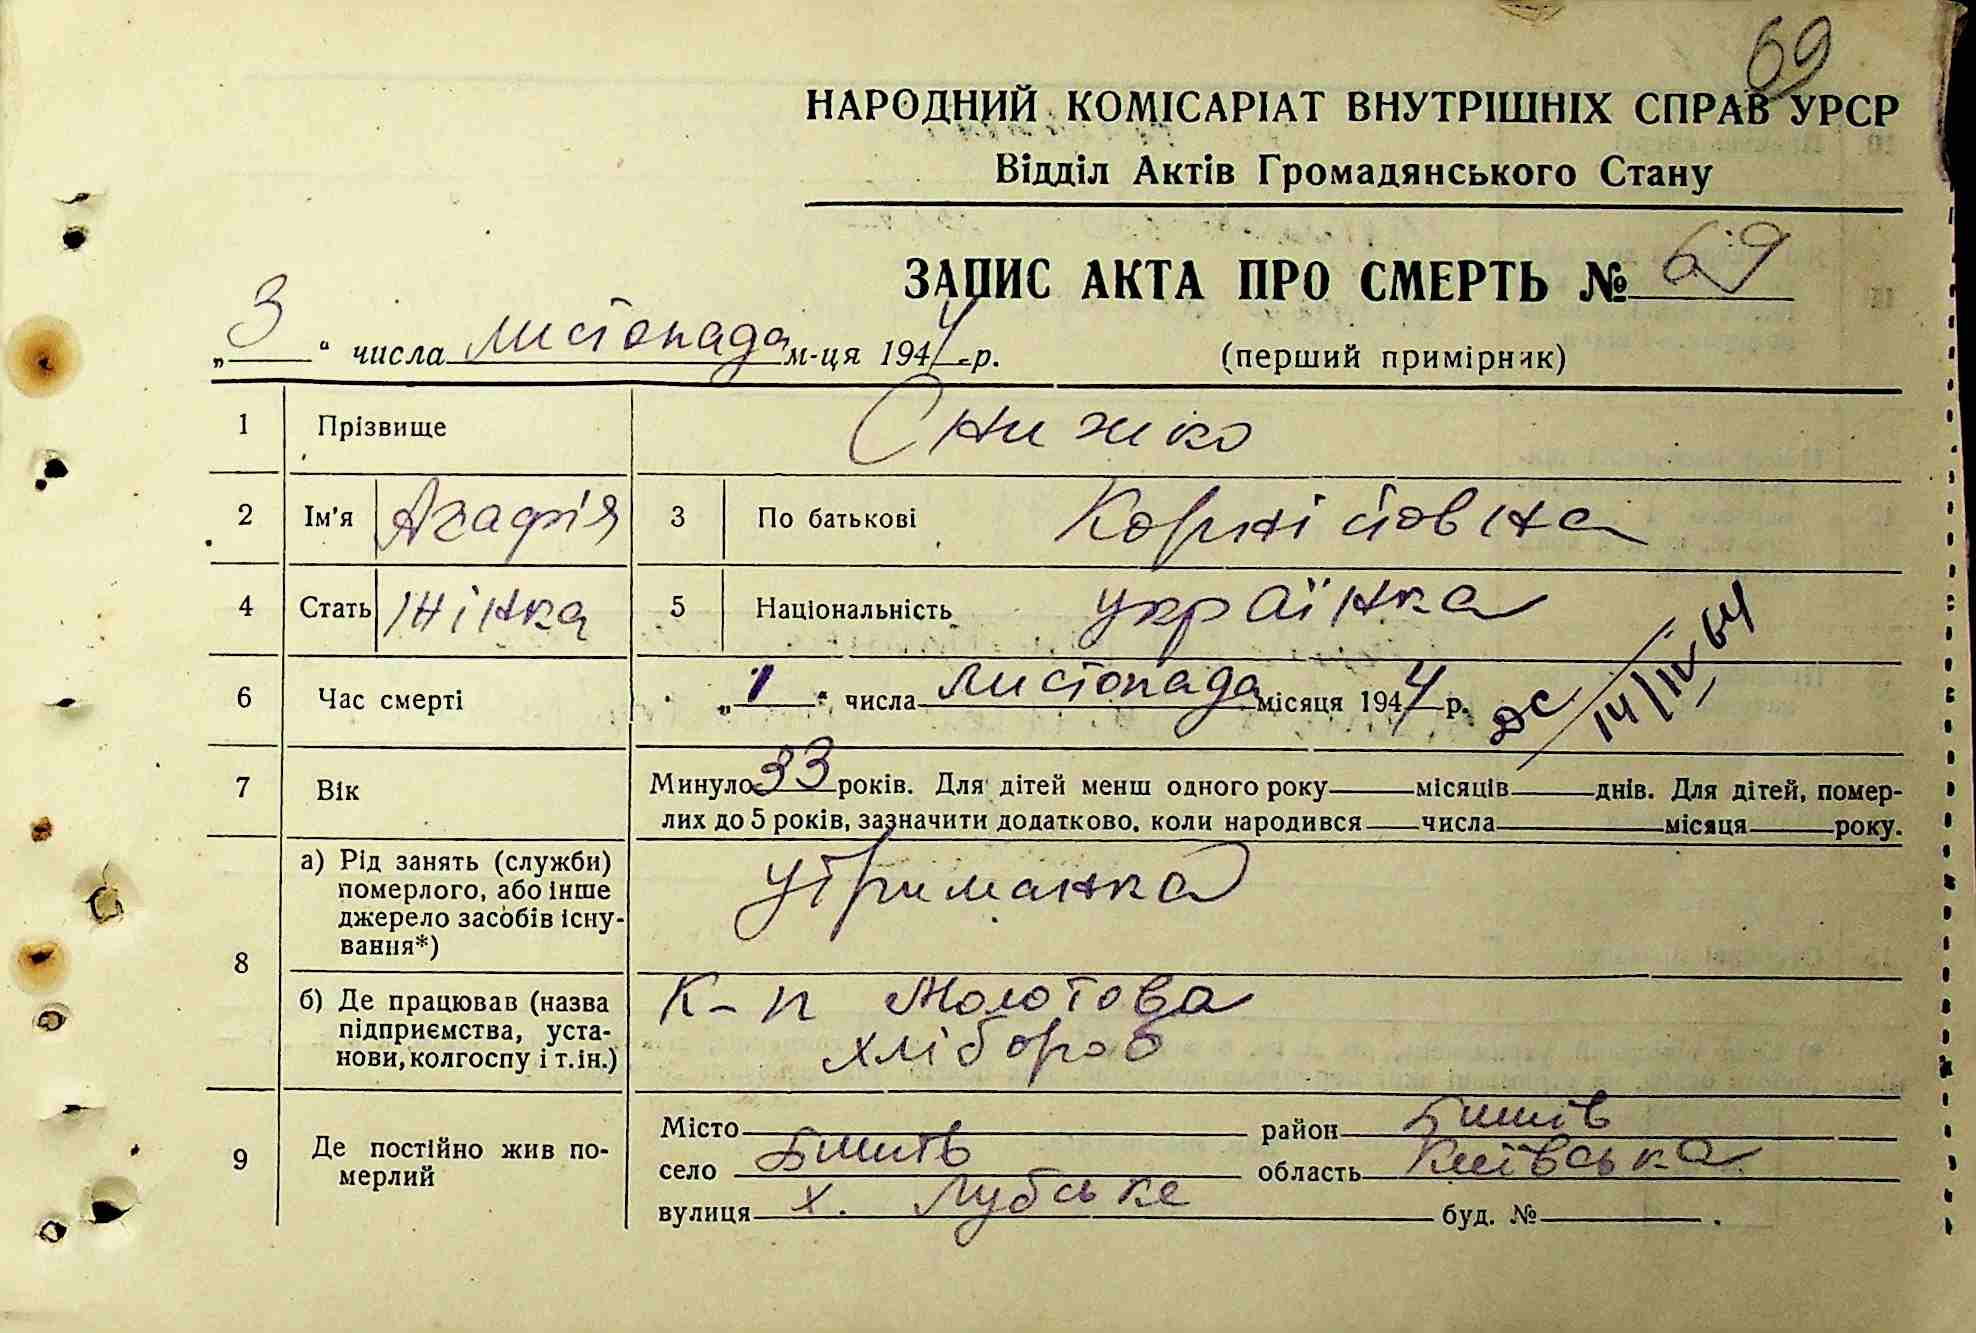 69
НАРОДНИЙ КОМІСАРІАТ ВНУТРІШНІХ СПРАВ УРСР
Відділ Актів Громадянського Стану
ЗАПИС АКТА ПРО СМЕРТЬ № 69
„3“ числа листопада м-ця 1944 р.
(перший примірник)
1 Прізвище Снижко
2 Ім'я Агафія 3 По батькові Корнійовна
4 Стать жінка 5 Національність українка
6 Час смерті „1“ числа листопада місяця 1944 р.
ДС 14/IV 64
7 Вік Минуло 33 років. Для дітей менш одного року місяців днів. Для дітей, помер-
лих до 5 років, зазначити додатково, коли народився числа місяця року.
8 а) Рід занять (служби) померлого, або інше джерело засобів існу-вання*) утриманка
б) Де працював (назва підприємства, уста-нови, колгоспу і т.ін.) К-п Молотова
хлібороб
9 Де постійно жив по-мерлий
Місто район Бишів
село Бишів область Київська
вулиця х. Лубське буд. №